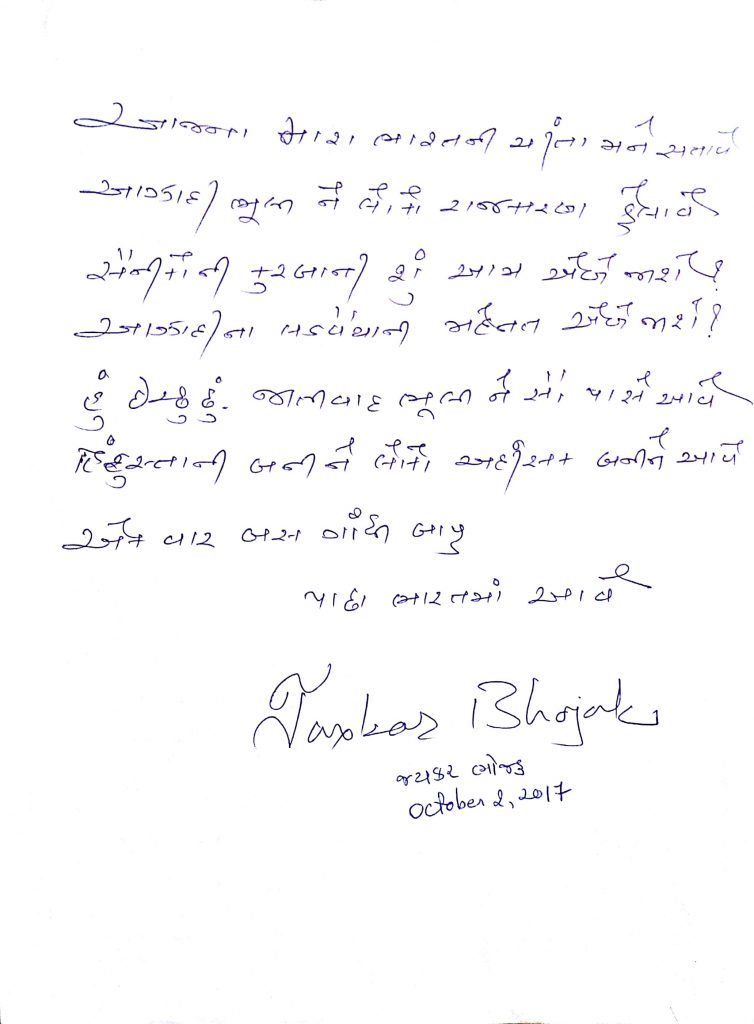 આજના મારા ભારતની ચીંતા મને સતાવે
આઝાદી ભૂલી ને લોકો રાજકારણ ફેલાવે
સૈનીકોની કુરબાની શું આમ એળે જાશે?
આઝાદીના લડવૈયાની મહેનત એળે જાશે?
હું ઈચ્છુ છું. જાતીવાદ ભૂલી ને સૌ પાસે આવે
હિંદુસ્તાની બની ને લોકો અહીંસક બનીને આવે
એક વાર બસ ગાંધી બાપુ
પાછા ભારતમાં આવે
Jaykar Bhojak
જયકર ભોજક
October 2, 2017